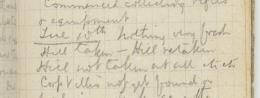 Commenced collecting rifles
& equipment
Tue 10th Nothing very fresh
Hill taken – Hill retaken
Hill not taken at all etc etc
Corp Ellis not get found or